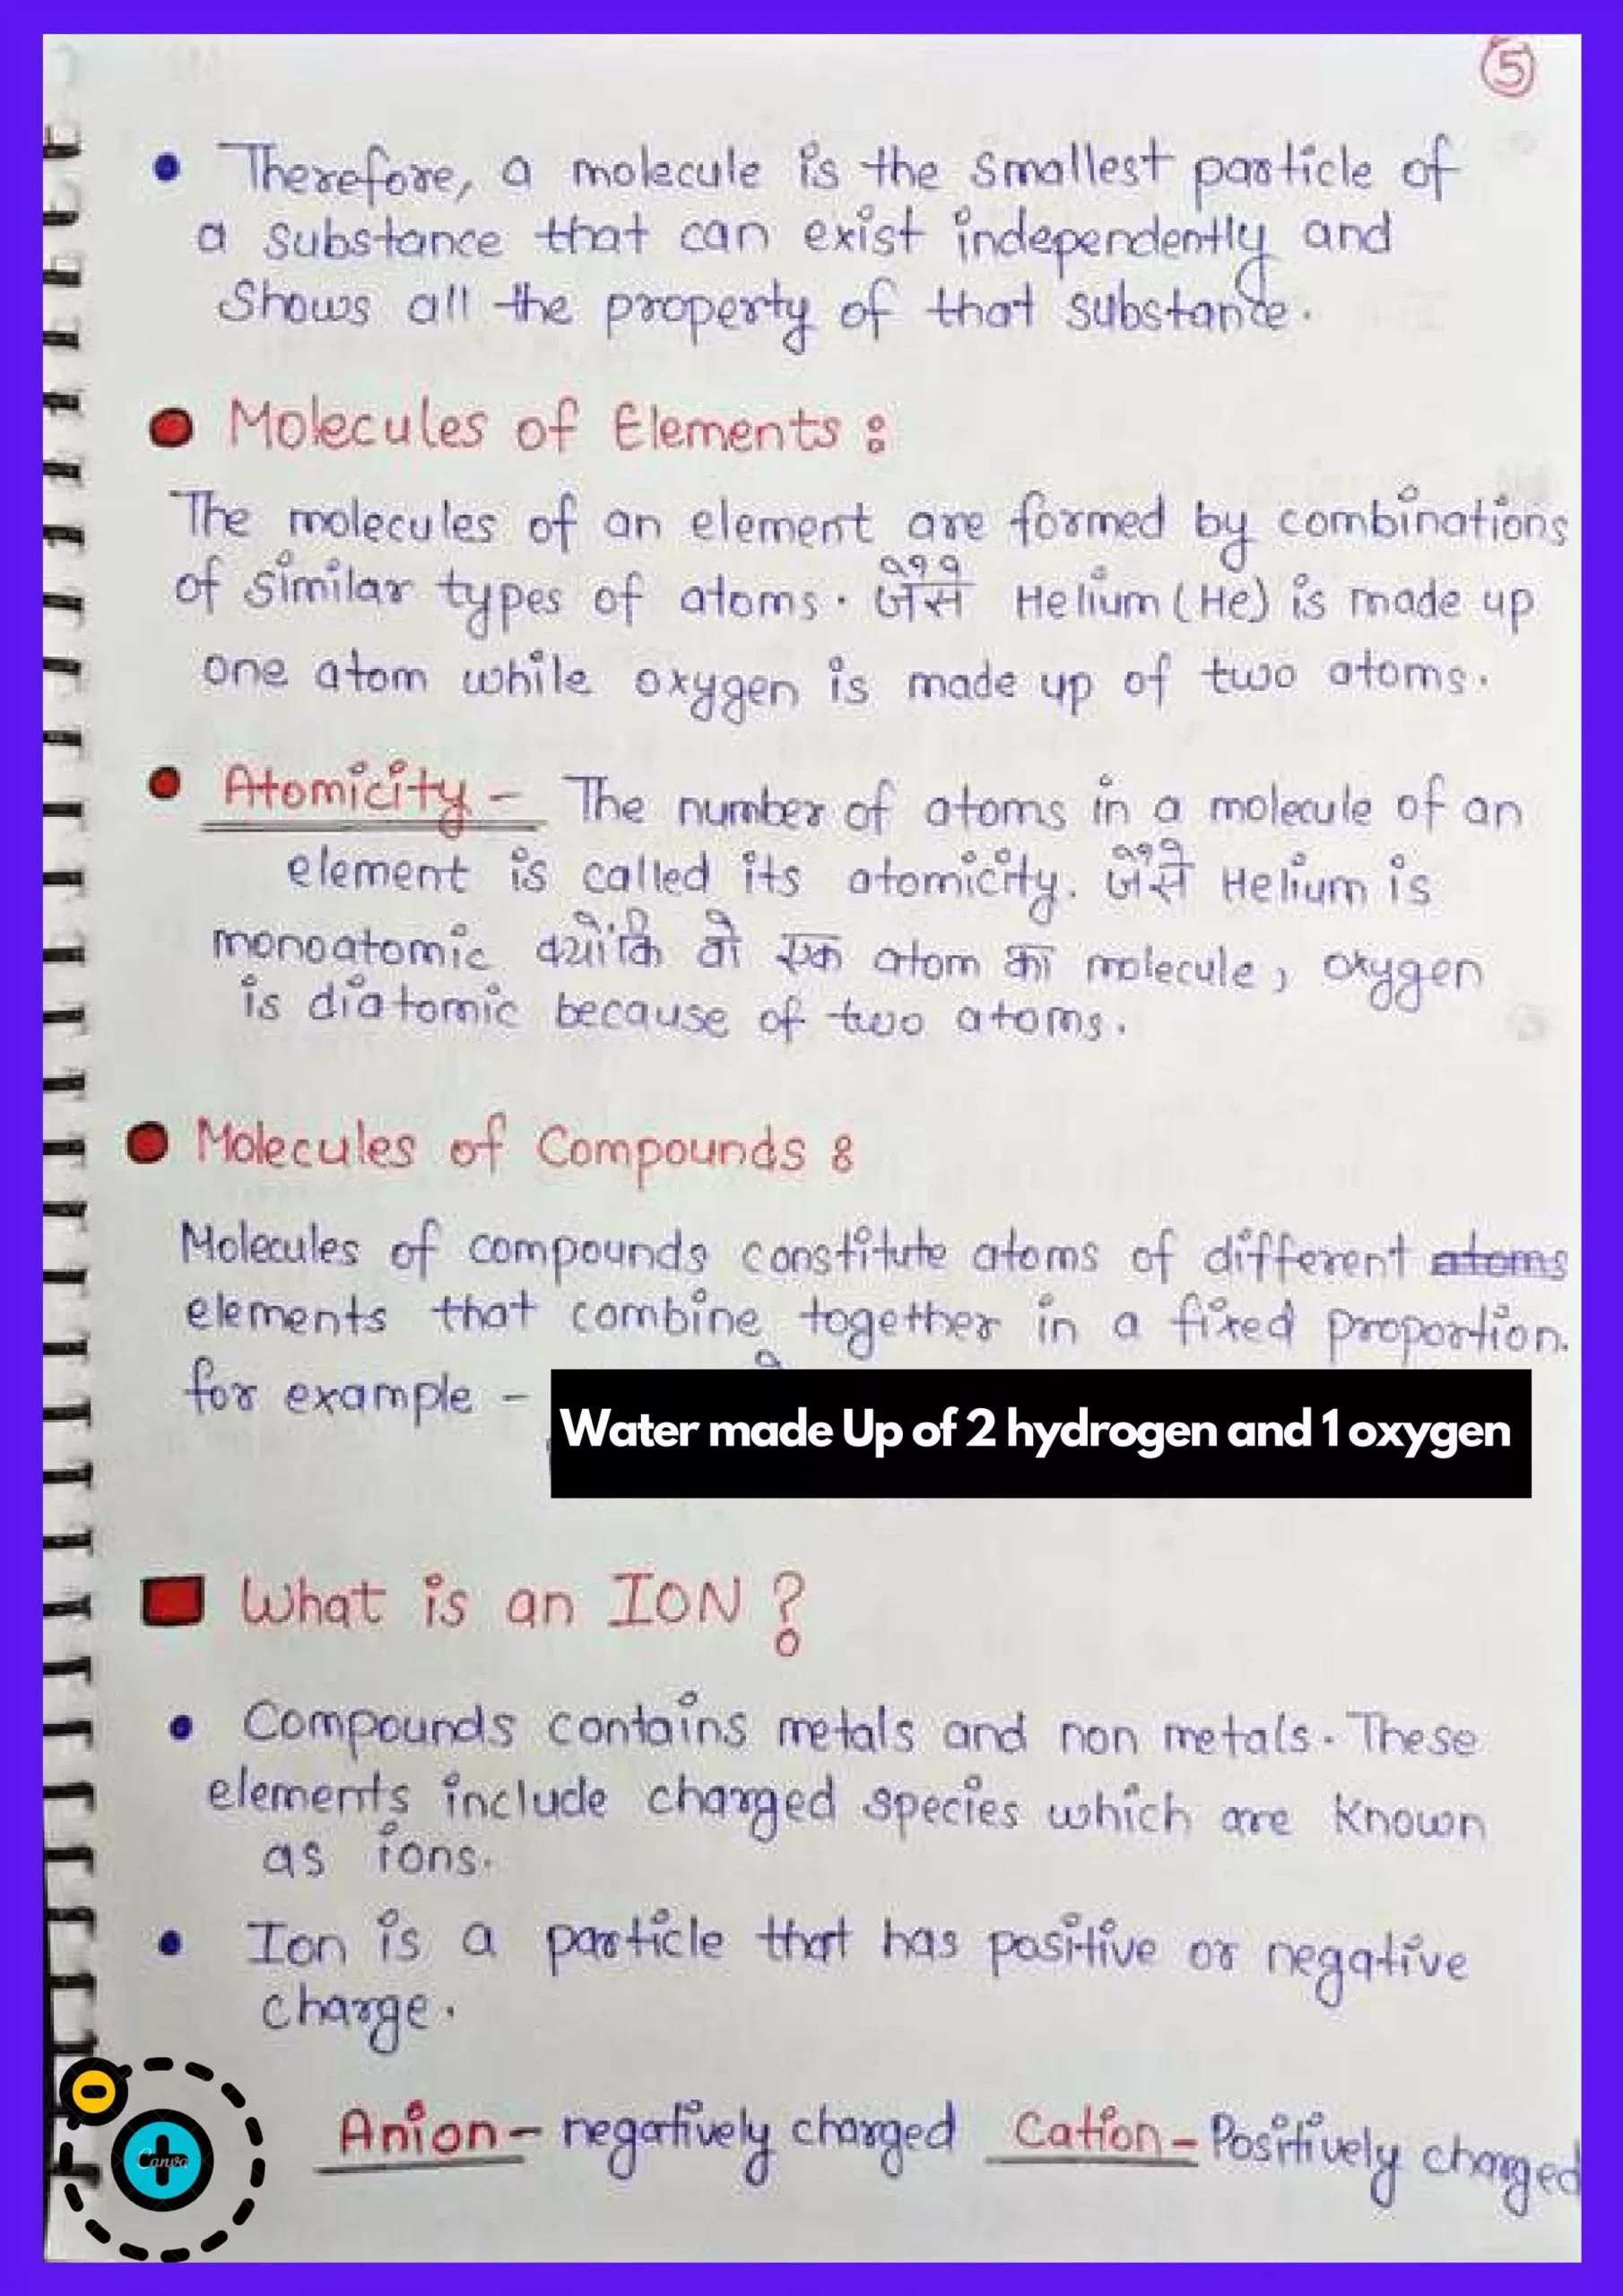 5
• Therefore, a molecule is the smallest particle of
a substance that can exist independently and
shows all the property of that substance.
• Molecules of Elements :
The molecules of an element are formed by combinations
of similar types of atoms. जैसे Helium (He) is made up
one atom while oxygen is made up of two atoms.
• Atomicity - The number of atoms in a molecule of an
element is called its atomicity. जैसे Helium is
monoatomic क्योंकि वो एक atom का molecule, oxygen
is diatomic because of two atoms.
• Molecules of Compounds :
Molecules of compounds constitute atoms of different atoms
elements that combine together in a fixed proportion.
for example -
Water made Up of 2 hydrogen and 1 oxygen
What is an ION ?
• Compounds contains metals and non metals. These
elements include charged species which are known
as ions.
• Ion is a particle that has positive or negative
charge.
Anion - negatively charged Cation - Positively charged
Canva